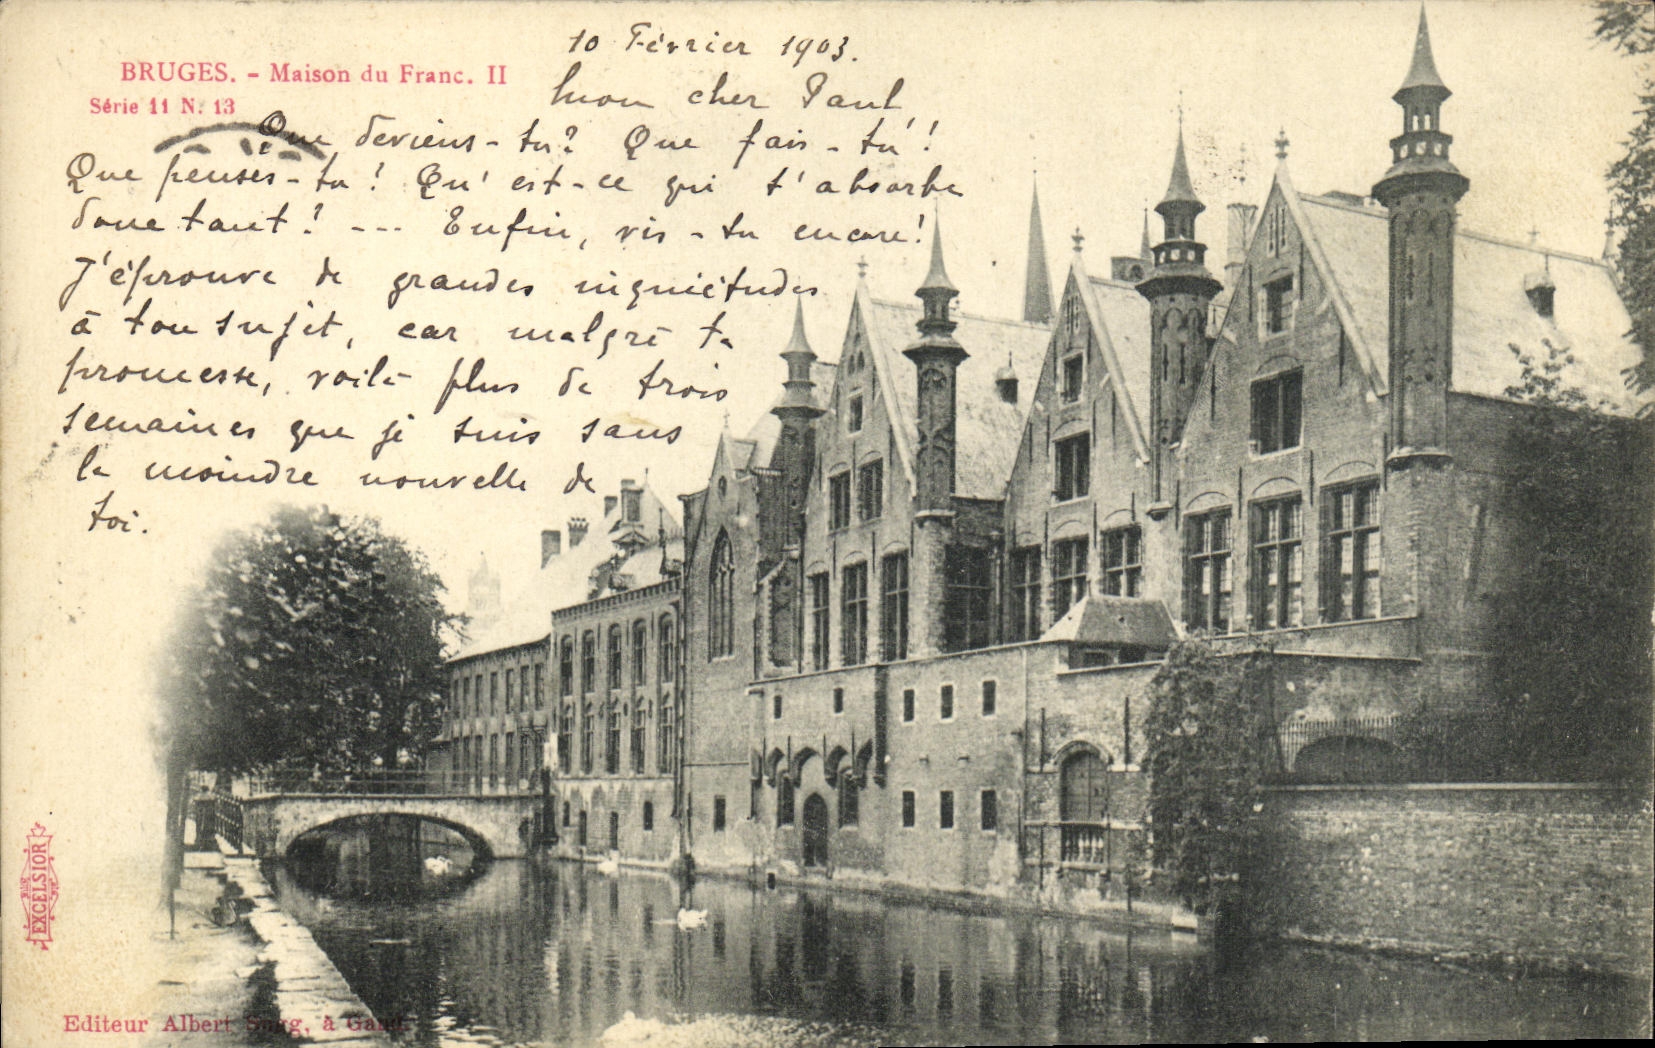 10 Février 1903.
BRUGES. - Maison du Franc. II
Série 11 N. 13
Mon cher Paul
Que deviens-tu? Que fais-tu!
Que penses-tu! Qu'est-ce qui t'absorbe
donc tant! --- Enfin, vis-tu encore!
J'éprouve de grandes inquiétudes
à ton sujet, car malgré ta
promesse, voilà plus de trois
semaines que je suis sans
la moindre nouvelle de
toi.
EXCELSIOR
Editeur Albert Sugg, à Gand